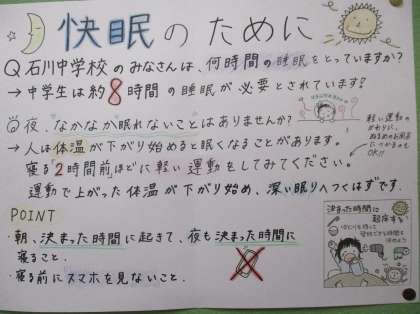 快眠のために
Q 石川中学校のみなさんは、何時間の睡眠をとっていますか?
→ 中学生は約8時間の睡眠が必要とされています!
Q 夜、なかなか眠れないことはありませんか?
→ 人は体温が下がり始めると眠くなることがあります。
寝る2時間前ほどに軽い運動をしてみてください。
運動で上がった体温が下がり始め、深い眠りへつくはずです。
軽い運動の
かわりに、
ぬるめのお風呂
につかるのも
OK!!
POINT
・朝、決まった時間に起きて、夜も決まった時間に
寝ること。
・寝る前にスマホを見ないこと。
決まった時間に
起床する